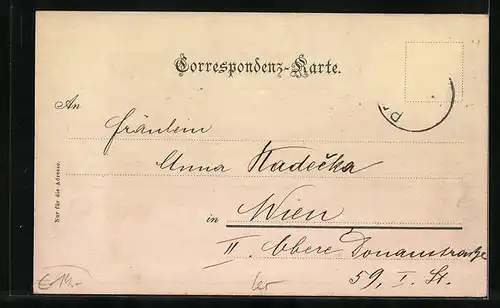 Correspondenz-Karte.
An
Fräulein
Anna Hadečka
in Wien
II. Obere Donaustraße
59, I. St.
Nur für die Adresse.